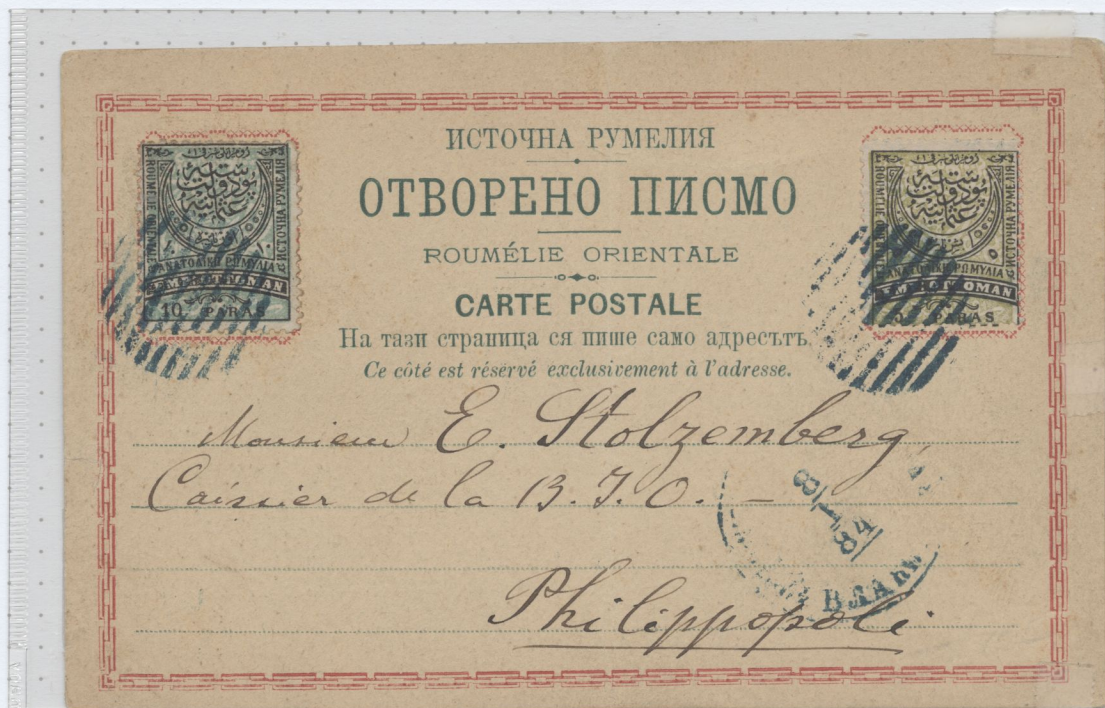 ИСТОЧНА РУМЕЛИЯ
ОТВОРЕНО ПИСМО
ROUMÉLIE ORIENTALE
CARTE POSTALE
На тази страница ся пише само адресътъ.
Ce côté est réservé exclusivement à l'adresse.
ROUMELIE ORIENTALE
ИСТОЧНА РУМЕЛIЯ
ΑΝΑΤΟΛΙΚΗ ΡΩΜΥΛΙΑ
EMP: OTTOMAN
10 PARAS
ИСТОЧНА РУМЕЛIЯ
ΑΝΑΤΟΛΙΚΗ ΡΩΜΥΛΙΑ
EMP: OTTOMAN
PARAS
Monsieur E. Stolzemberg,
Caissier de la B. I. O. –
Philippopoli
8/1
84